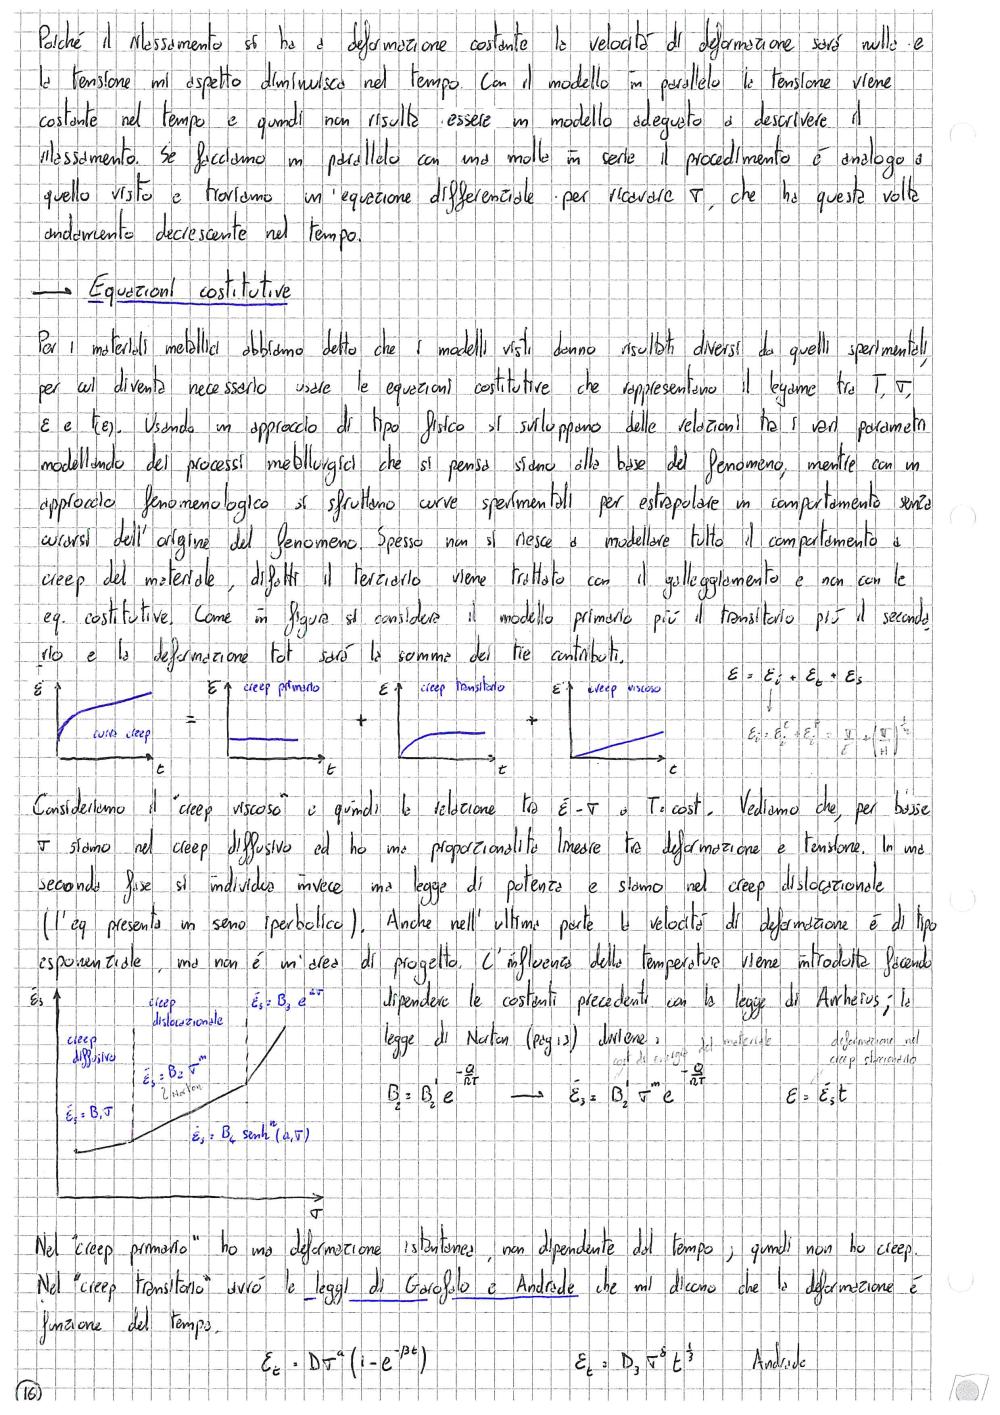 Poiché il rilassamento si ha a deformazione costante la velocità di deformazione sarà nulla e
la tensione mi aspetto diminuisca nel tempo. Con il modello in parallelo la tensione viene
costante nel tempo e quindi non risulta essere un modello adeguato a descrivere il
rilassamento. Se facciamo un parallelo con una molla in serie il procedimento è analogo a
quello visto e troviamo un'equazione differenziale per ricavare σ, che ha questa volta
andamento decrescente nel tempo.
→ Equazioni costitutive
Per i materiali metallici abbiamo detto che i modelli visti danno risultati diversi da quelli sperimentali,
per cui diventa necessario usare le equazioni costitutive che rappresentano il legame tra T, σ,
ε e t(ε). Usando un approccio di tipo fisico si sviluppano delle relazioni tra i vari parametri
modellando dei processi metallurgici che si pensa siano alla base del fenomeno, mentre con un
approccio fenomenologico si sfruttano curve sperimentali per estrapolare un comportamento senza
curarsi dell'origine del fenomeno. Spesso non si riesce a modellare tutto il comportamento a
creep del materiale, difatti il terziario viene trattato con il galleggiamento e non con le
eq. costitutive. Come in figura si considera il modello primario più il transitorio più il seconda
rio e la deformazione tot sarà la somma dei tre contributi.
ε curva creep t = ε creep primario t + ε creep transitorio t + ε creep viscoso t
ε = εi + εt + εs
Consideriamo il "creep viscoso" e quindi la relazione tra ε̇ - σ a T=cost. Vediamo che, per basse
σ siamo nel creep diffusivo ed ho una proporzionalità lineare tra deformazione e tensione. In una
seconda fase si individua invece una legge di potenza e siamo nel creep dislocazionale
(l'eq presenta un seno iperbolico). Anche nell'ultima parte la velocità di deformazione è di tipo
esponenziale, ma non è un'area di progetto. L'influenza della temperatura viene introdotta facendo
dipendere le costanti precedenti con la legge di Arrheius; la
legge di Norton (pag 13) diviene:
deformazione nel
creep stazionario
B₂ = B₂' e^(-Q/RT) → ε̇s = B₂' σ^m e^(-Q/RT) ε = ε̇s t
ε̇s
creep
diffusivo
ε̇s = B₁σ
creep
dislocazionale
ε̇s = B₂ σ^m
Norton
ε̇s = B₃ e^(aσ)
ε̇s = B₄ senh^n (a₁σ)
σ
Nel "creep primario" ho una deformazione istantanea, non dipendente dal tempo; quindi non ho creep.
Nel "creep transitorio" avrò le leggi di Garofalo e Andrade che mi dicono che la deformazione è
funzione del tempo.
εt = Dσ^a (1-e^(-βt)) εt = D₃ σ^δ t^(1/3) Andrade
16